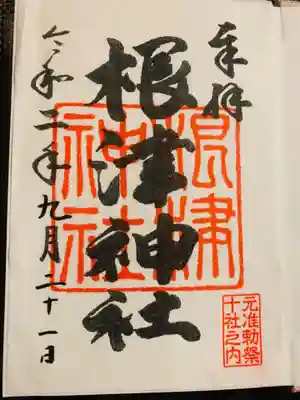 奉拝
根津神社
根津神社
元准勅祭
十社之内
令和二年九月二十一日